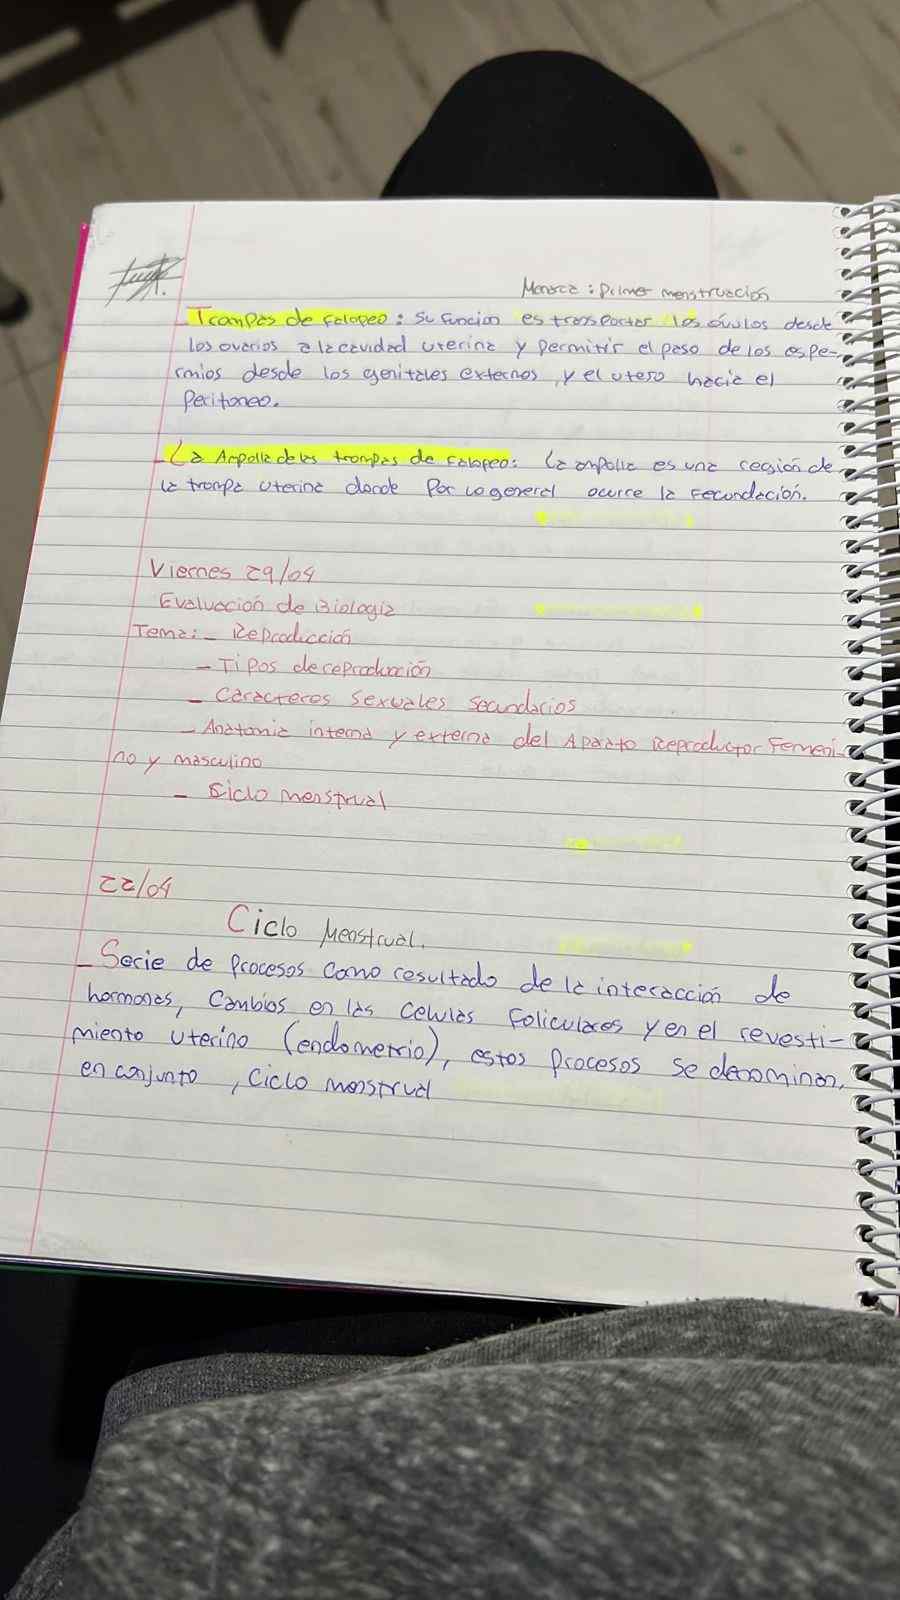 Menarca : Primer menstruación
- Trompas de falopeo : Su función es transportar los óvulos desde
los ovarios a la cavidad uterina y permitir el paso de los espe-
rmios desde los genitales externos y el utero hacia el
Peritoneo.
- La Ampolla de las trompas de falopeo: La ampolla es una región de
la trompa uterina donde Por lo general ocurre la Fecundación.
Viernes 29/04
Evaluación de Biologia
Tema: - Reproducción
- Tipos de reproducción
- Caracteres Sexuales Secundarios
- Anatomia interna y externa del Aparato Reproductor Femeni-
no y masculino
- Ciclo menstrual
22/04
Ciclo Menstrual.
- Serie de Procesos Como resultado de la interacción de
hormonas, Cambios en las Celulas Foliculares y en el revesti-
miento Uterino (endometrio), estos procesos se denominan,
en conjunto, Ciclo menstrual